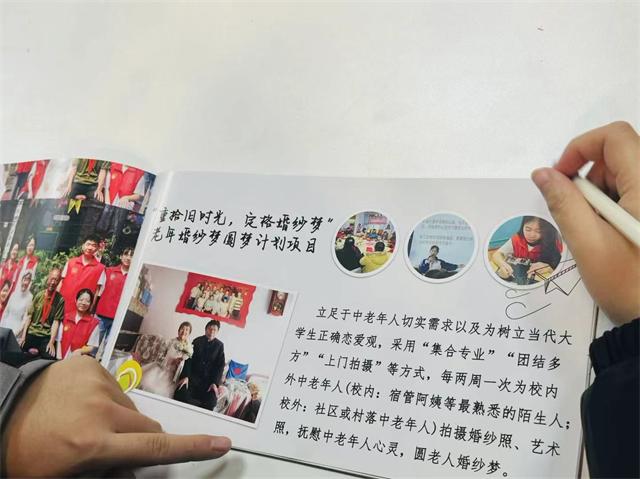 “重拾旧时光，定格婚纱梦”
老年婚纱梦圆梦计划项目
立足于中老年人切实需求以及为树立当代大
学生正确恋爱观，采用“集合专业”“团结多
方”“上门拍摄”等方式，每两周一次为校内
外中老年人(校内：宿管阿姨等最熟悉的陌生人；
校外：社区或村落中老年人)拍摄婚纱照、艺术
照，抚慰中老年人心灵，圆老人婚纱梦。